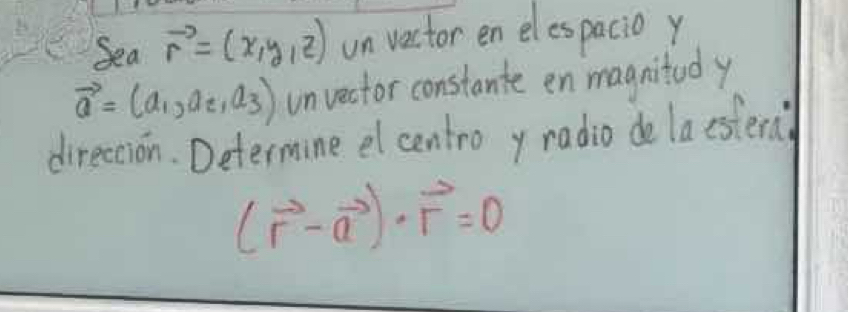 Sea r⃗ = (x,y,z) un vector en el espacio y
a⃗ = (a₁,a₂,a₃) un vector constante en magnitud y
dirección. Determine el centro y radio de la esfera:
(r⃗ - a⃗) · r⃗ = 0